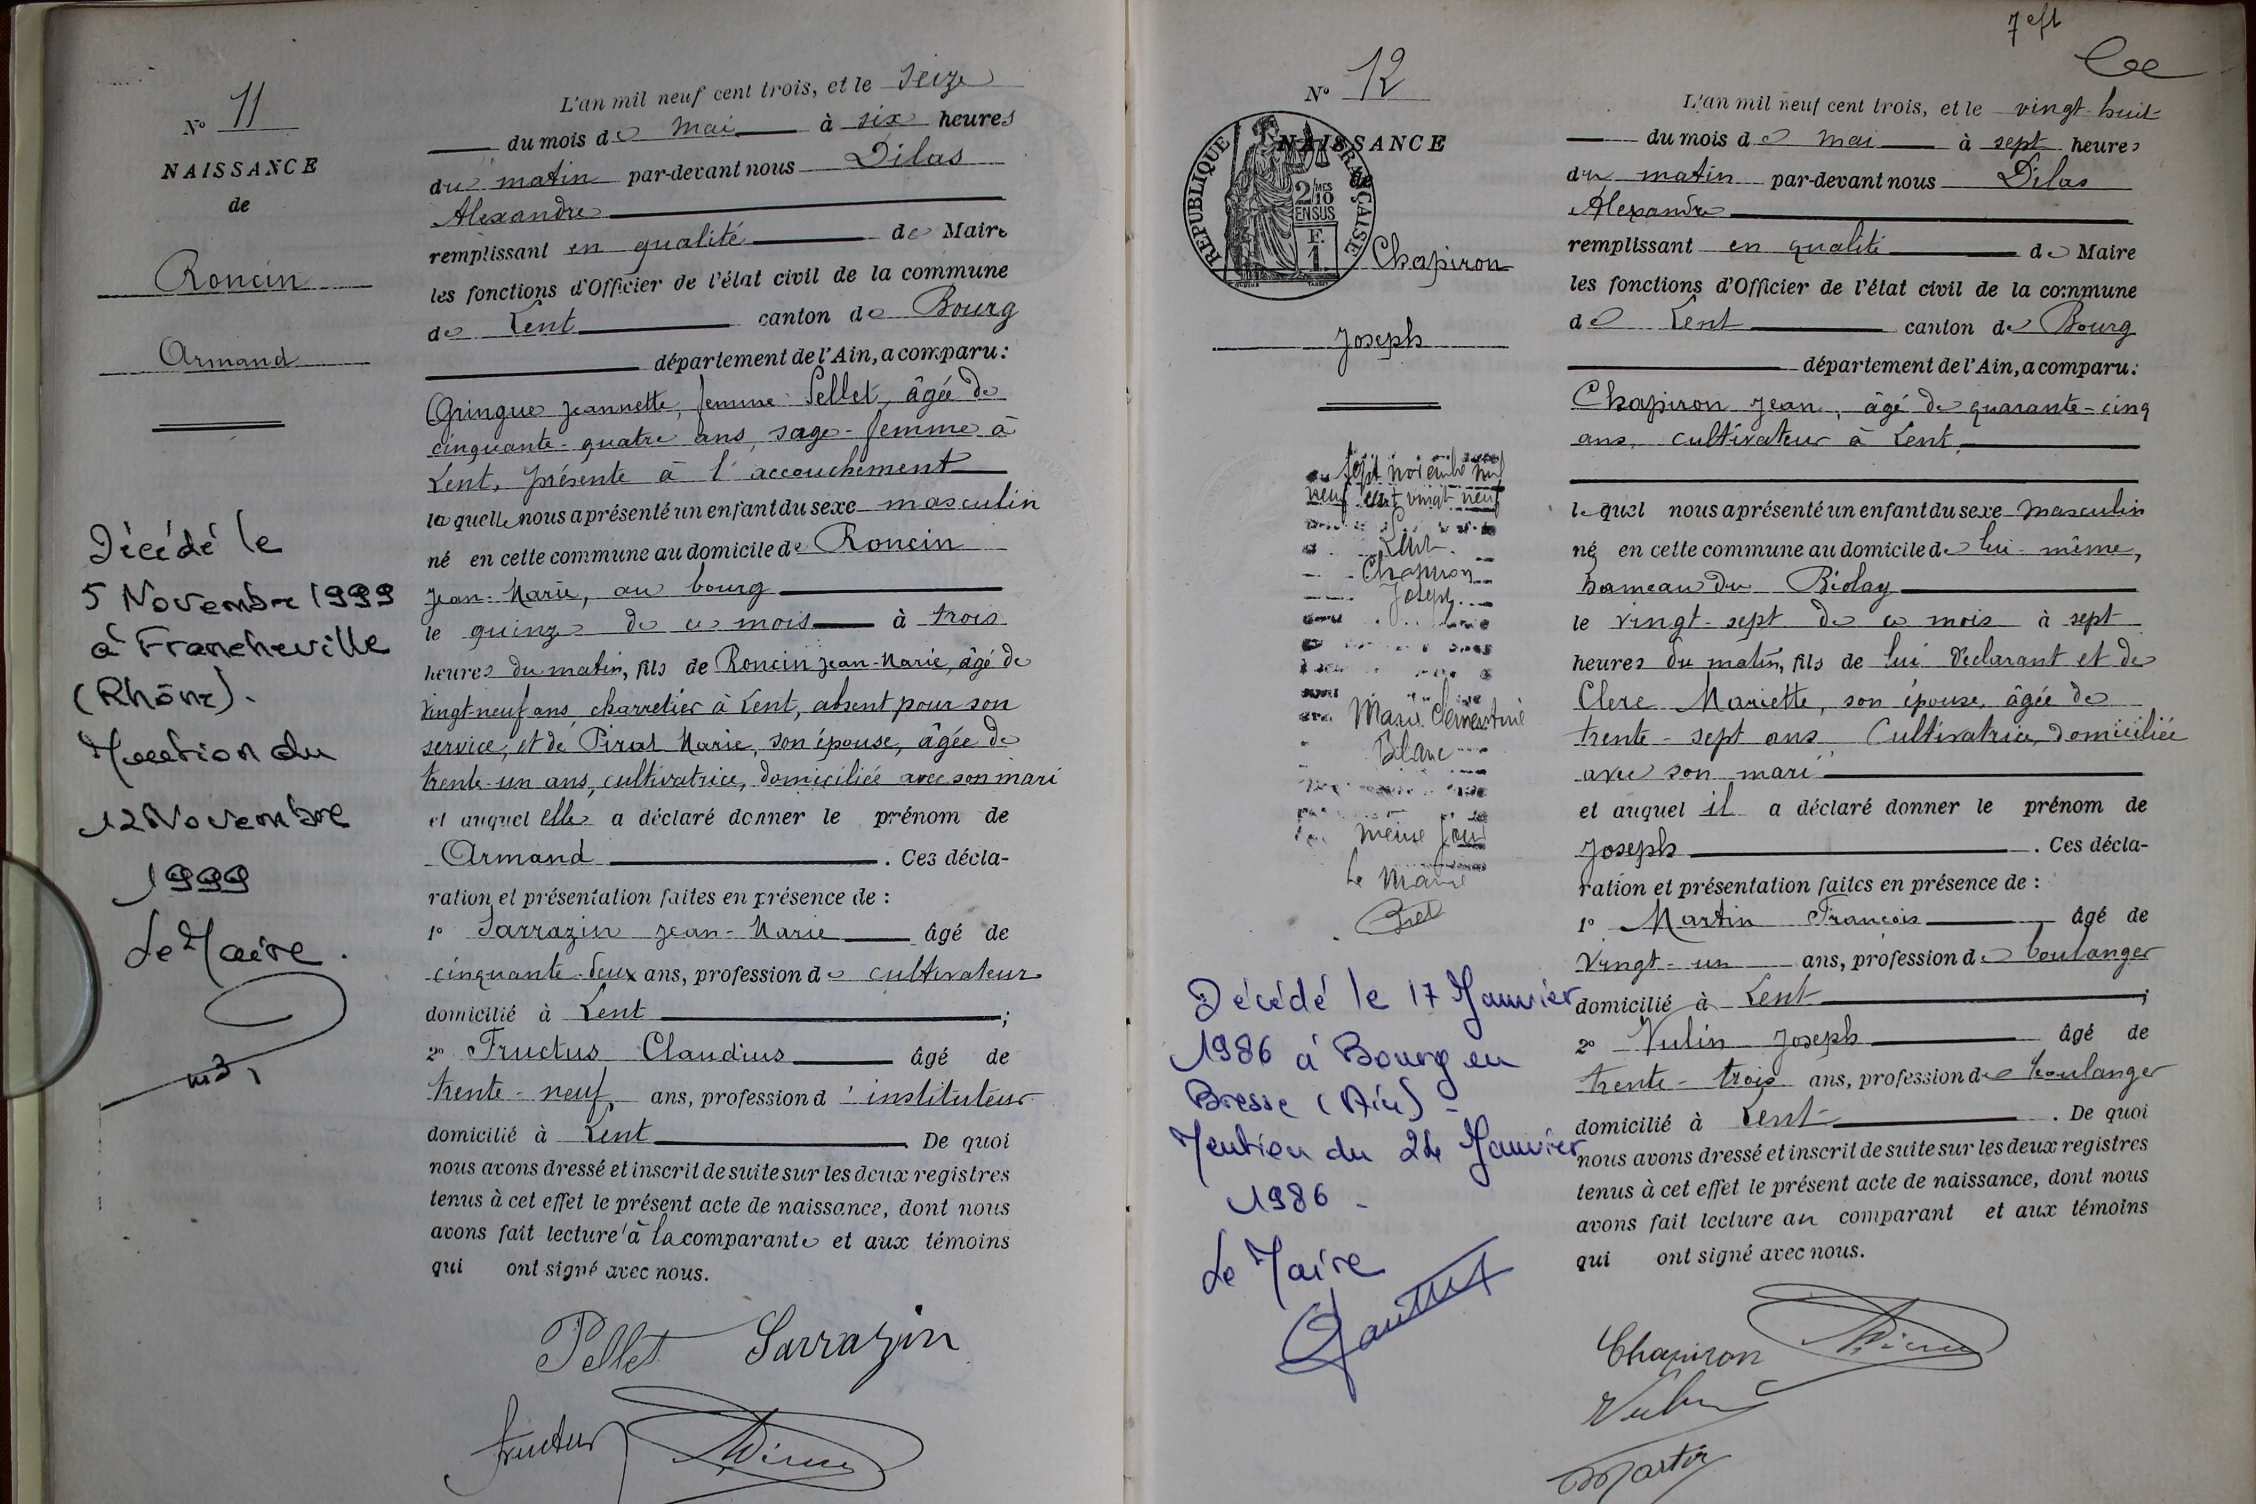 N° 11
NAISSANCE
de
Roncin
Armand
Décédé le
5 Novembre 1999
à Francheville
(Rhône).
Mention du
12 Novembre
1999
Le Maire.
L'an mil neuf cent trois, et le seize
du mois de mai à six heures
du matin par-devant nous Dilas
Alexandre
remplissant en qualité de Maire
les fonctions d'Officier de l'état civil de la commune
de Lent canton de Bourg
département de l'Ain, a comparu:
Gringue Jeannette, femme Pellet, âgée de
cinquante-quatre ans, sage-femme à
Lent, présente à l'accouchement
laquelle nous a présenté un enfant du sexe masculin
né en cette commune au domicile de Roncin
Jean-Marie, au bourg
le quinze de ce mois à trois
heures du matin, fils de Roncin Jean-Marie, âgé de
vingt-neuf ans, charretier à Lent, absent pour son
service, et de Pirat Marie, son épouse, âgée de
trente-un ans, cultivatrice, domiciliée avec son mari
et auquel elle a déclaré donner le prénom de
Armand. Ces décla-
ration et présentation faites en présence de:
1° Sarrazin Jean-Marie âgé de
cinquante-deux ans, profession de cultivateur
domicilié à Lent;
2° Fructus Claudius âgé de
trente-neuf, ans, profession d'instituteur
domicilié à Lent De quoi
nous avons dressé et inscrit de suite sur les deux registres
tenus à cet effet le présent acte de naissance, dont nous
avons fait lecture à la comparante et aux témoins
qui ont signé avec nous.
Pellet Sarrazin
Fructus
7
N° 12
NAISSANCE
de
RÉPUBLIQUE FRANÇAISE
2/10
EN SUS
F.
1
Chapiron
Joseph
sept novembre mil
neuf cent vingt neuf
Lent
Chapiron
Joseph
Marie Clémentine
Blanc
même jour
Le Maire
Décédé le 17 Janvier
1986 à Bourg en
Bresse (Ain) -
Mention du 24 Janvier
1986 -
Le Maire
L'an mil neuf cent trois, et le vingt huit
du mois de mai à sept heures
du matin par-devant nous Dilas
Alexandre
remplissant en qualité de Maire
les fonctions d'Officier de l'état civil de la commune
de Lent canton de Bourg
département de l'Ain, a comparu:
Chapiron Jean, âgé de quarante-cinq
ans, cultivateur à Lent,
lequel nous a présenté un enfant du sexe masculin
né en cette commune au domicile de lui-même,
hameau du Biolay
le vingt-sept de ce mois à sept
heures du matin, fils de lui déclarant et de
Clerc Mariette, son épouse, âgée de
trente-sept ans, Cultivatrice, domiciliée
avec son mari
et auquel il a déclaré donner le prénom de
Joseph. Ces décla-
ration et présentation faites en présence de:
1° Martin François âgé de
vingt-un ans, profession de boulanger
domicilié à Lent;
2° Vulin Joseph âgé de
trente-trois ans, profession de boulanger
domicilié à Lent. De quoi
nous avons dressé et inscrit de suite sur les deux registres
tenus à cet effet le présent acte de naissance, dont nous
avons fait lecture au comparant et aux témoins
qui ont signé avec nous.
Chapiron
Vulin
Martin